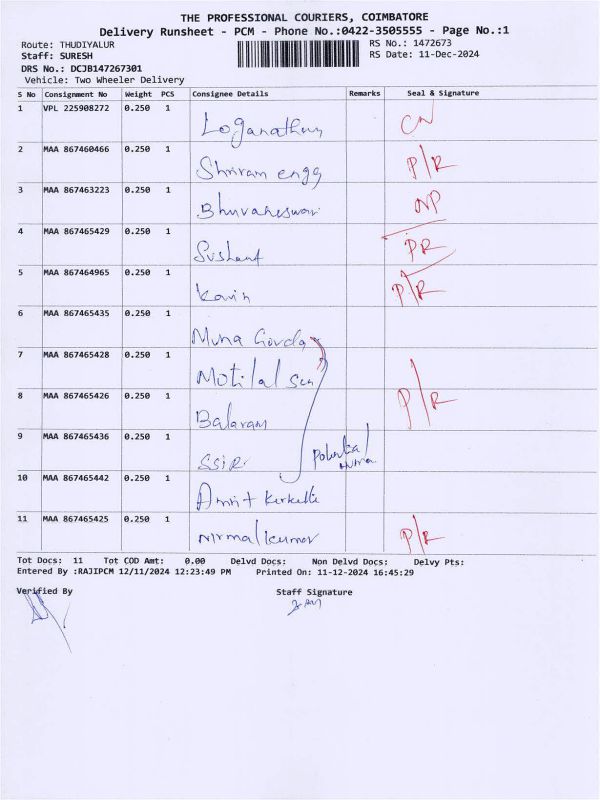 THE PROFESSIONAL COURIERS, COIMBATORE
Delivery Runsheet - PCM - Phone No.:0422-3505555 - Page No.:1
Route: THUDIYALUR RS No.: 1472673
Staff: SURESH RS Date: 11-Dec-2024
DRS No.: DCJB147267301
Vehicle: Two Wheeler Delivery
S No Consignment No Weight PCS Consignee Details Remarks Seal & Signature
1 VPL 225908272 0.250 1 Loganathan CN
2 MAA 867460466 0.250 1 Shriram engg P/R
3 MAA 867463223 0.250 1 Bhuvaneswari NP
4 MAA 867465429 0.250 1 Sushant PR
5 MAA 867464965 0.250 1 Kavin P/R
6 MAA 867465435 0.250 1 Muna Gowda
7 MAA 867465428 0.250 1 Motilal Sen
8 MAA 867465426 0.250 1 Balaram P/R
9 MAA 867465436 0.250 1 SSIR
10 MAA 867465442 0.250 1 Amrit Kerketta
11 MAA 867465425 0.250 1 Nirmalkumar P/R
Tot Docs: 11 Tot COD Amt: 0.00 Delvd Docs: Non Delvd Docs: Delvy Pts:
Entered By :RAJIPCM 12/11/2024 12:23:49 PM Printed On: 11-12-2024 16:45:29
Verified By Staff Signature